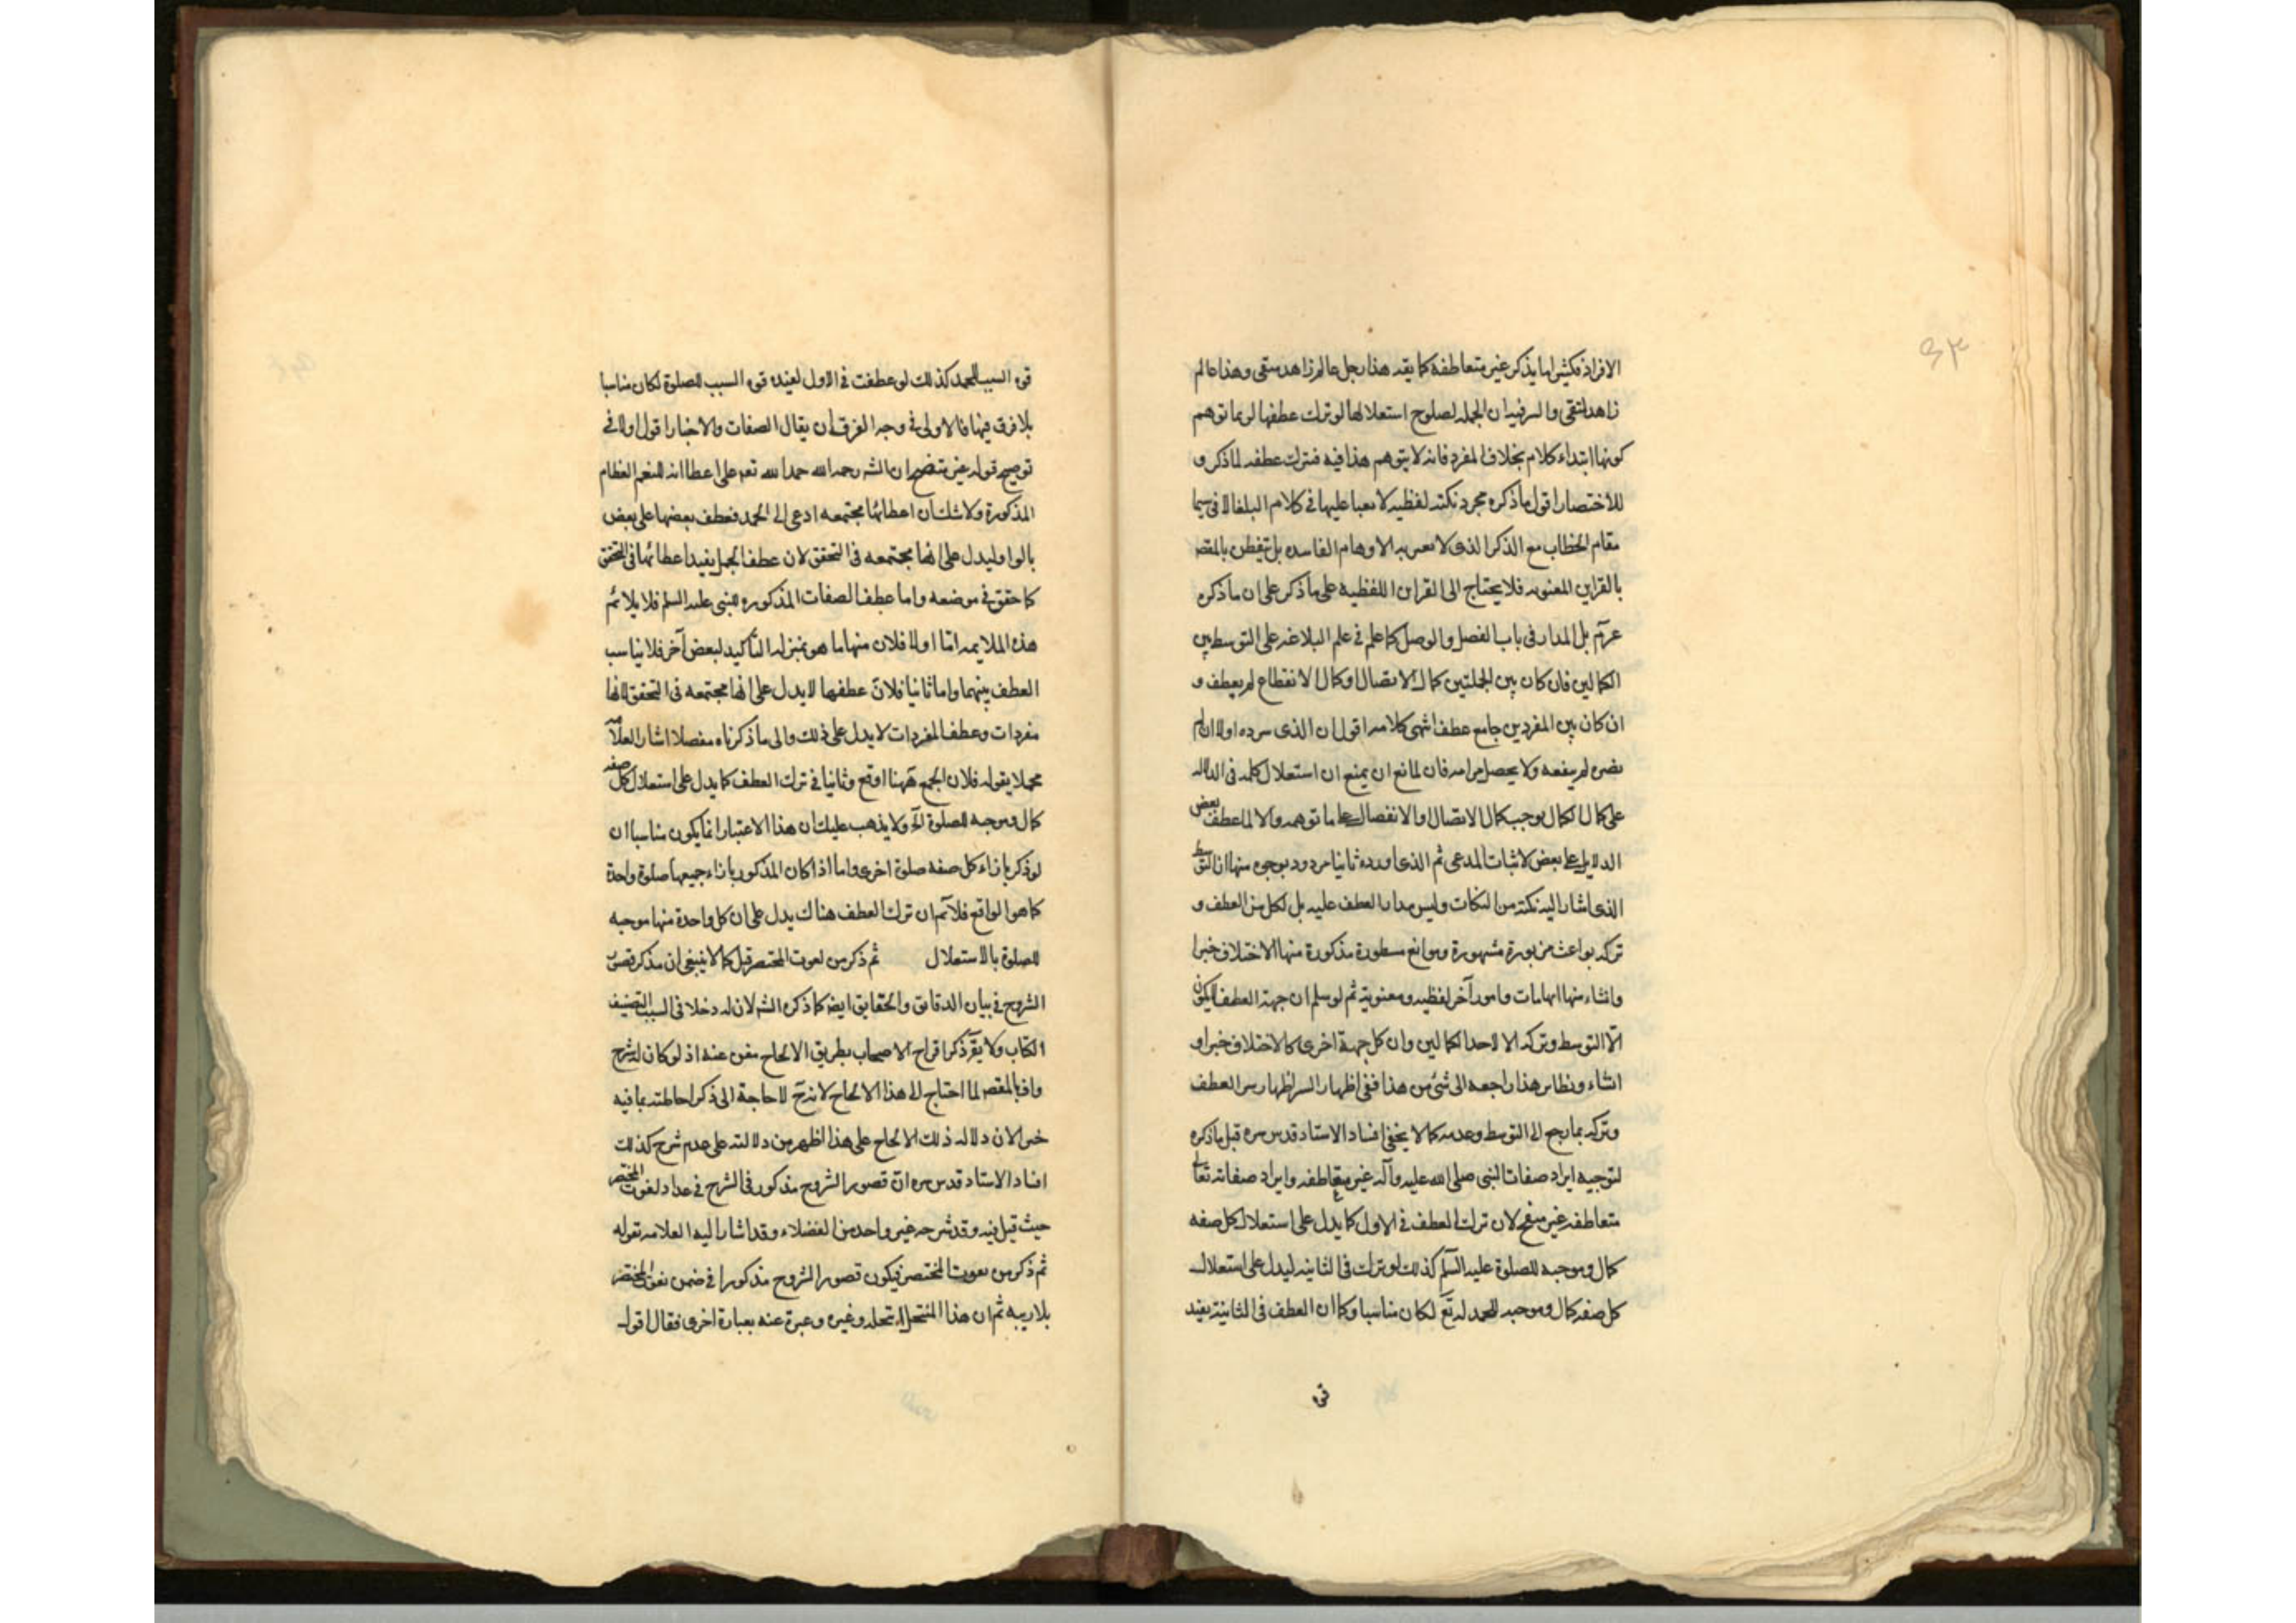 ٩٣
الافراد فكثيرا ما يذكر غير متعاطفة كما يقد هذا رجل عالم زاهد متقى وهذا عالم
زاهد لتقى والسر فيه ان الجمله لصلوح استعلالها لو ترك عطفها لربما توهم
كونها ابتداء كلام بخلاف المفرد فانه لا يتوهم هذا فيه فترك عطفه لما ذكر و
للاختصار اقول ما ذكره مجرد نكتة لفظيه لا يعبا عليها في كلام البلغا لا فى سيما
مقام الخطاب مع الذكر الذى لا بعس به الاوهام الفاسده بل تيفطن بالمقصد
بالقراين المعنويه فلا يحتاج الى القراين اللفظيه على ما ذكر على ان ما ذكره
عرتم بل المدار فى باب الفصل والوصل كما علم في علم البلاغه على التوسط بين
الكمالين فان كان بين الجملتين كمال الاتصال او كمال الانقطاع لم يعطف و
ان كان بين المفردين جامع عطف انتهى كلامه اقول ان الذى سرده اولا ان لم
يضره لم ينفعه ولا يحصل مرامه فان لمانع ان يمنع ان استعلال كلمه فى الدلاله
على كمال الكمال يوجب كمال الاتصال او الانفصال على ما توهمه والا لما عطف بعض
الدلايل على بعض لاثبات المدعى ثم الذى اورده ثانيا مردود بوجوه منها ان التوسط
الذى اشار اليه نكتة من النكات وليس مدار العطف عليه بل لكل من العطف و
تركه بواعث مزبورة مشهورة وموانع مسطورة مذكورة منها الاختلاف خبرا
وانشاء منها ايهامات وامور آخر لفظيه ومعنوية ثم لو سلم ان جهة العطف لا يكون
الا التوسط وتركه الا لاحد الكمالين وان كل جهة اخرى كالاختلاف خبرا و
انشاء ونظاير هذا راجعه الى شئ من هذا ففى اظهار السر اظهار سر العطف
وتركه بما يرجع الى التوسط وعدمه كما لا يخفى افاد الاستاد قدس سره قبل ما ذكره
لتوجيه ايراد صفات النبى صلى الله عليه وآله غير متعاطفه وايراد صفاته تعالى
متعاطفه غير منقح لان ترك العطف في الاول كما يدل على استعلال كل صفه
كمال وموجبه للصلوة عليه السلم كذلك لو ترك فى الثانيه ليدل على استعلال
كل صفه كمال وموجبه للحمد له تع لكان مناسبا وكما ان العطف فى الثانية يفيد
قوة
قوة السبب للحمد كذلك لو عطفت في الاول لعيده قوة السبب للصلوة لكان مناسبا
بلا فرق فيها فالاولى في وجه الفرق ان يقال الصفات والاخبار اقول اولا في
توضيح قوله غير متضح ان الشه رحمه الله حمد الله تعه على اعطائه للنعم العظام
المذكورة ولا شك ان اعطائها مجتمعه ادعى الى الحمد فعطف بعضها على بعض
بالواو ليدل على انها مجتمعه فى التحقق لان عطف الجمل يفيد اعطائها فى التحقق
كما حقق في موضعه واما عطف الصفات المذكوره للنبى عليه السلم فلا يلائم
هذه الملايمه اما اولا فلان منها ما هو بمنزله التأكيد لبعض آخر فلا يناسب
العطف بينهما واما ثانيا فلان عطفها لا يدل على انها مجتمعه فى التحقق لانها
مفردات وعطف المفردات لا يدل على ذلك والى ما ذكرناه مفصلا اشار العلامه
مجملا بقوله فلان الجمع ههنا اوقع وثانيا في ترك العطف كما يدل على استعلال كل صفه
كمال وموجبه للصلوة آه ولا يذهب عليك ان هذا الاعتبار انما يكون مناسبا ان
لو ذكر بازاء كل صفه صلوة اخرى واما اذا كان المذكور بازاء جميعها صلوة واحدة
كما هو الواقع فلا تم ان ترك العطف هناك يدل على ان كل واحدة منها موجبه
للصلوة بالاستعلال ثم ذكر من لعوت المختصر قيل كما لا ينبغى ان يذكر قصور
الشروح في بيان الدقايق والحقايق ايضه كما ذكره الشه لان له دخلا فى السبب لتصنيف
الكتاب ولا يقه ذكر اقراح الاصحاب بطريق الالحاح مغن عنه اذ لو كان له شرح
واف بالمقصد لما احتاج الى هذا الالحاح لانه ح لا حاجة الى ذكر احاطته بما فيه
خبر لان دلاله ذلك الالحاح على هذا اظهر من دلالته على عدم شرح كذلك
افاد الاستاد قدس سره ان قصور الشروح مذكور فى الشرح في عداد لغوت المختصر
حيث قيل فيه وقد شرحه غير واحد من الفضلاء وقد اشار اليه العلامه بقوله
ثم ذكر من نعوت المختصر فيكون قصور الشروح مذكورا في ضمن نعوت المختصر
بلا ريبه ثم ان هذا المنتحل انتحله وغيره وعبرة عنه بعبارة اخرى فقال اقول